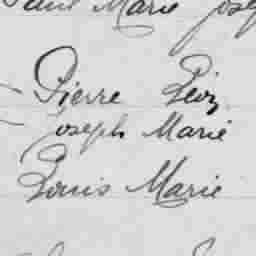 Marie Jose
Pierre Léon
Joseph Marie
Louis Marie